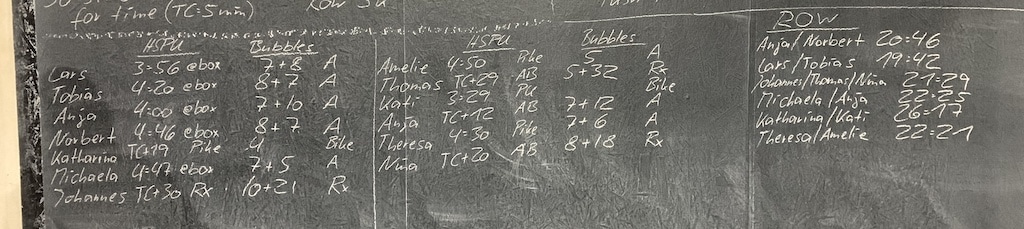 for time (TC=5min)
HSPU Bubbles
Lars 3=56 @box 7+8 A
Tobias 4=20 @box 8+7 A
Anja 4=00 @box 7+10 A
Norbert 4=46 @box 8+7 A
Katharina TC+19 Pike 4 Bike
Michaela 4=47 @box 7+5 A
Johannes TC+30 Rx 10+21 Rx
HSPU Bubbles
Amelie 4=50 Pike 5 A
Thomas TC+29 AB 5+32 Rx
Kati 3=29 PU Bike
Anja TC+12 AB 7+12 A
Theresa 4=30 Pike 7+6 A
Nina TC+20 AB 8+18 Rx
ROW
Anja/Norbert 20=46
Lars/Tobias 19=42
Johannes/Thomas/Nina 21=29
Michaela/Anja 22=25
Katharina/Kati 26=17
Theresa/Amelie 22=21